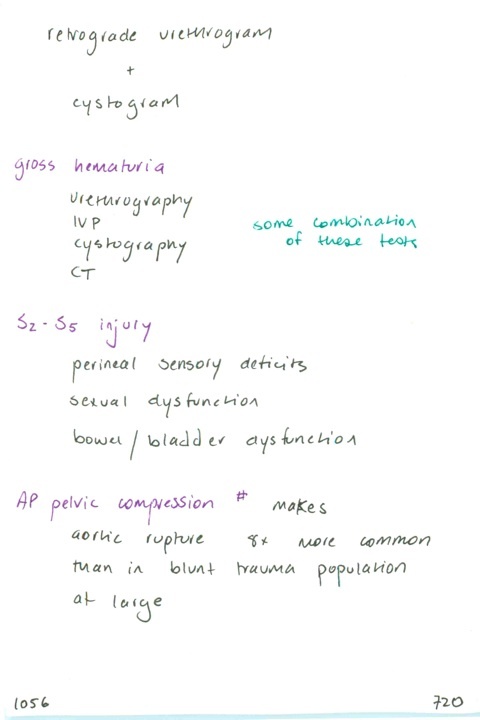 retrograde urethrogram
+
cystogram
gross hematuria
urethrography
IVP
cystography
CT
some combination
of these tests
S2-S5 injury
perineal sensory deficits
sexual dysfunction
bowel/bladder dysfunction
AP pelvic compression # makes
aortic rupture 8x more common
than in blunt trauma population
at large
1056
720